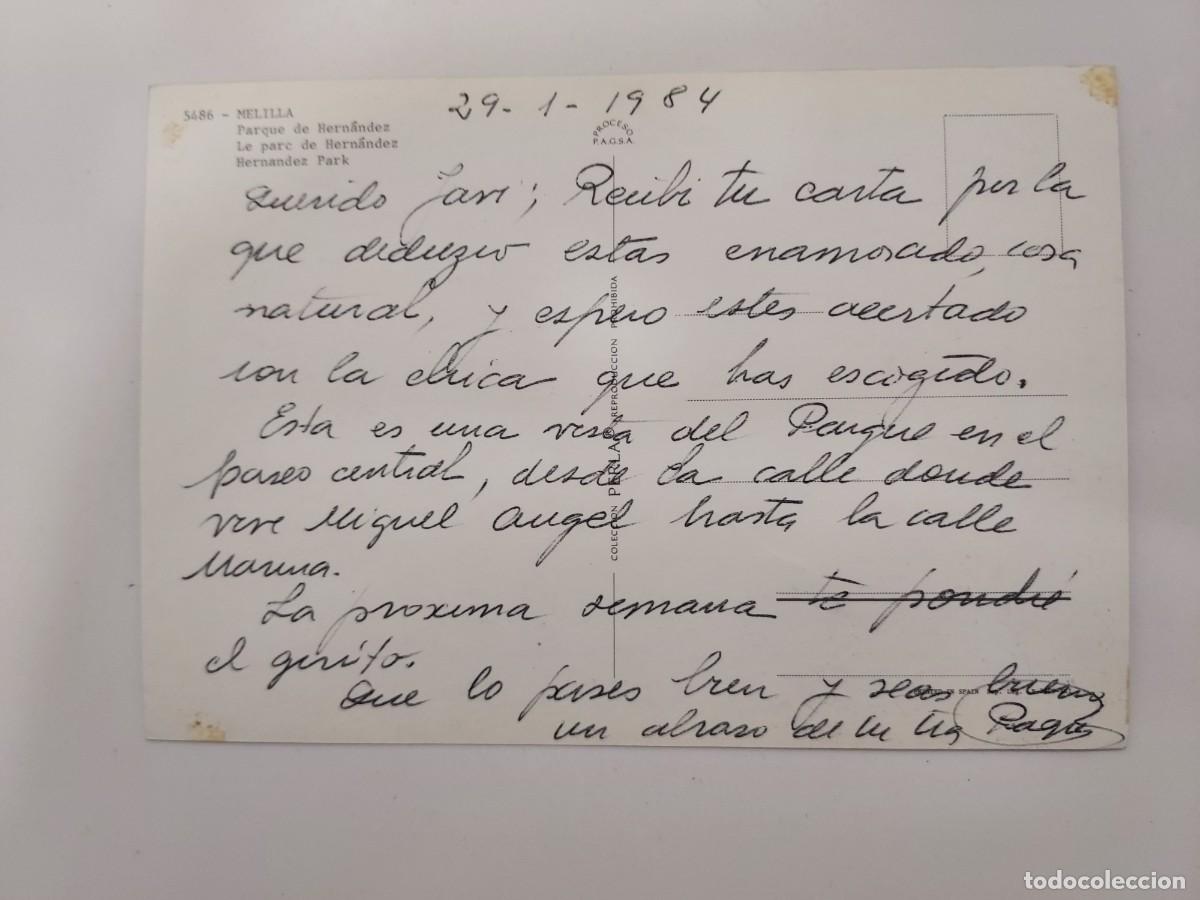 29-1-1984
5486 - MELILLA
Parque de Hernández
Le parc de Hernández
Hernandez Park
PROCESO
P.A.G.S.A.
Querido Javi; Recibi tu carta por la
que deduzco estas enamorado, cosa
natural, y espero estes acertado
con la chica que has escogido.
Esta es una vista del Parque en el
paseo central, desde la calle donde
vive Miguel Angel hasta la calle
Marina.
La proxima semana te pondré
el girito.
Que lo pases bien y seas bueno
un abrazo de tu tia
COLECCION PERLA REPRODUCCION PROHIBIDA
IN SPAIN
todocoleccion